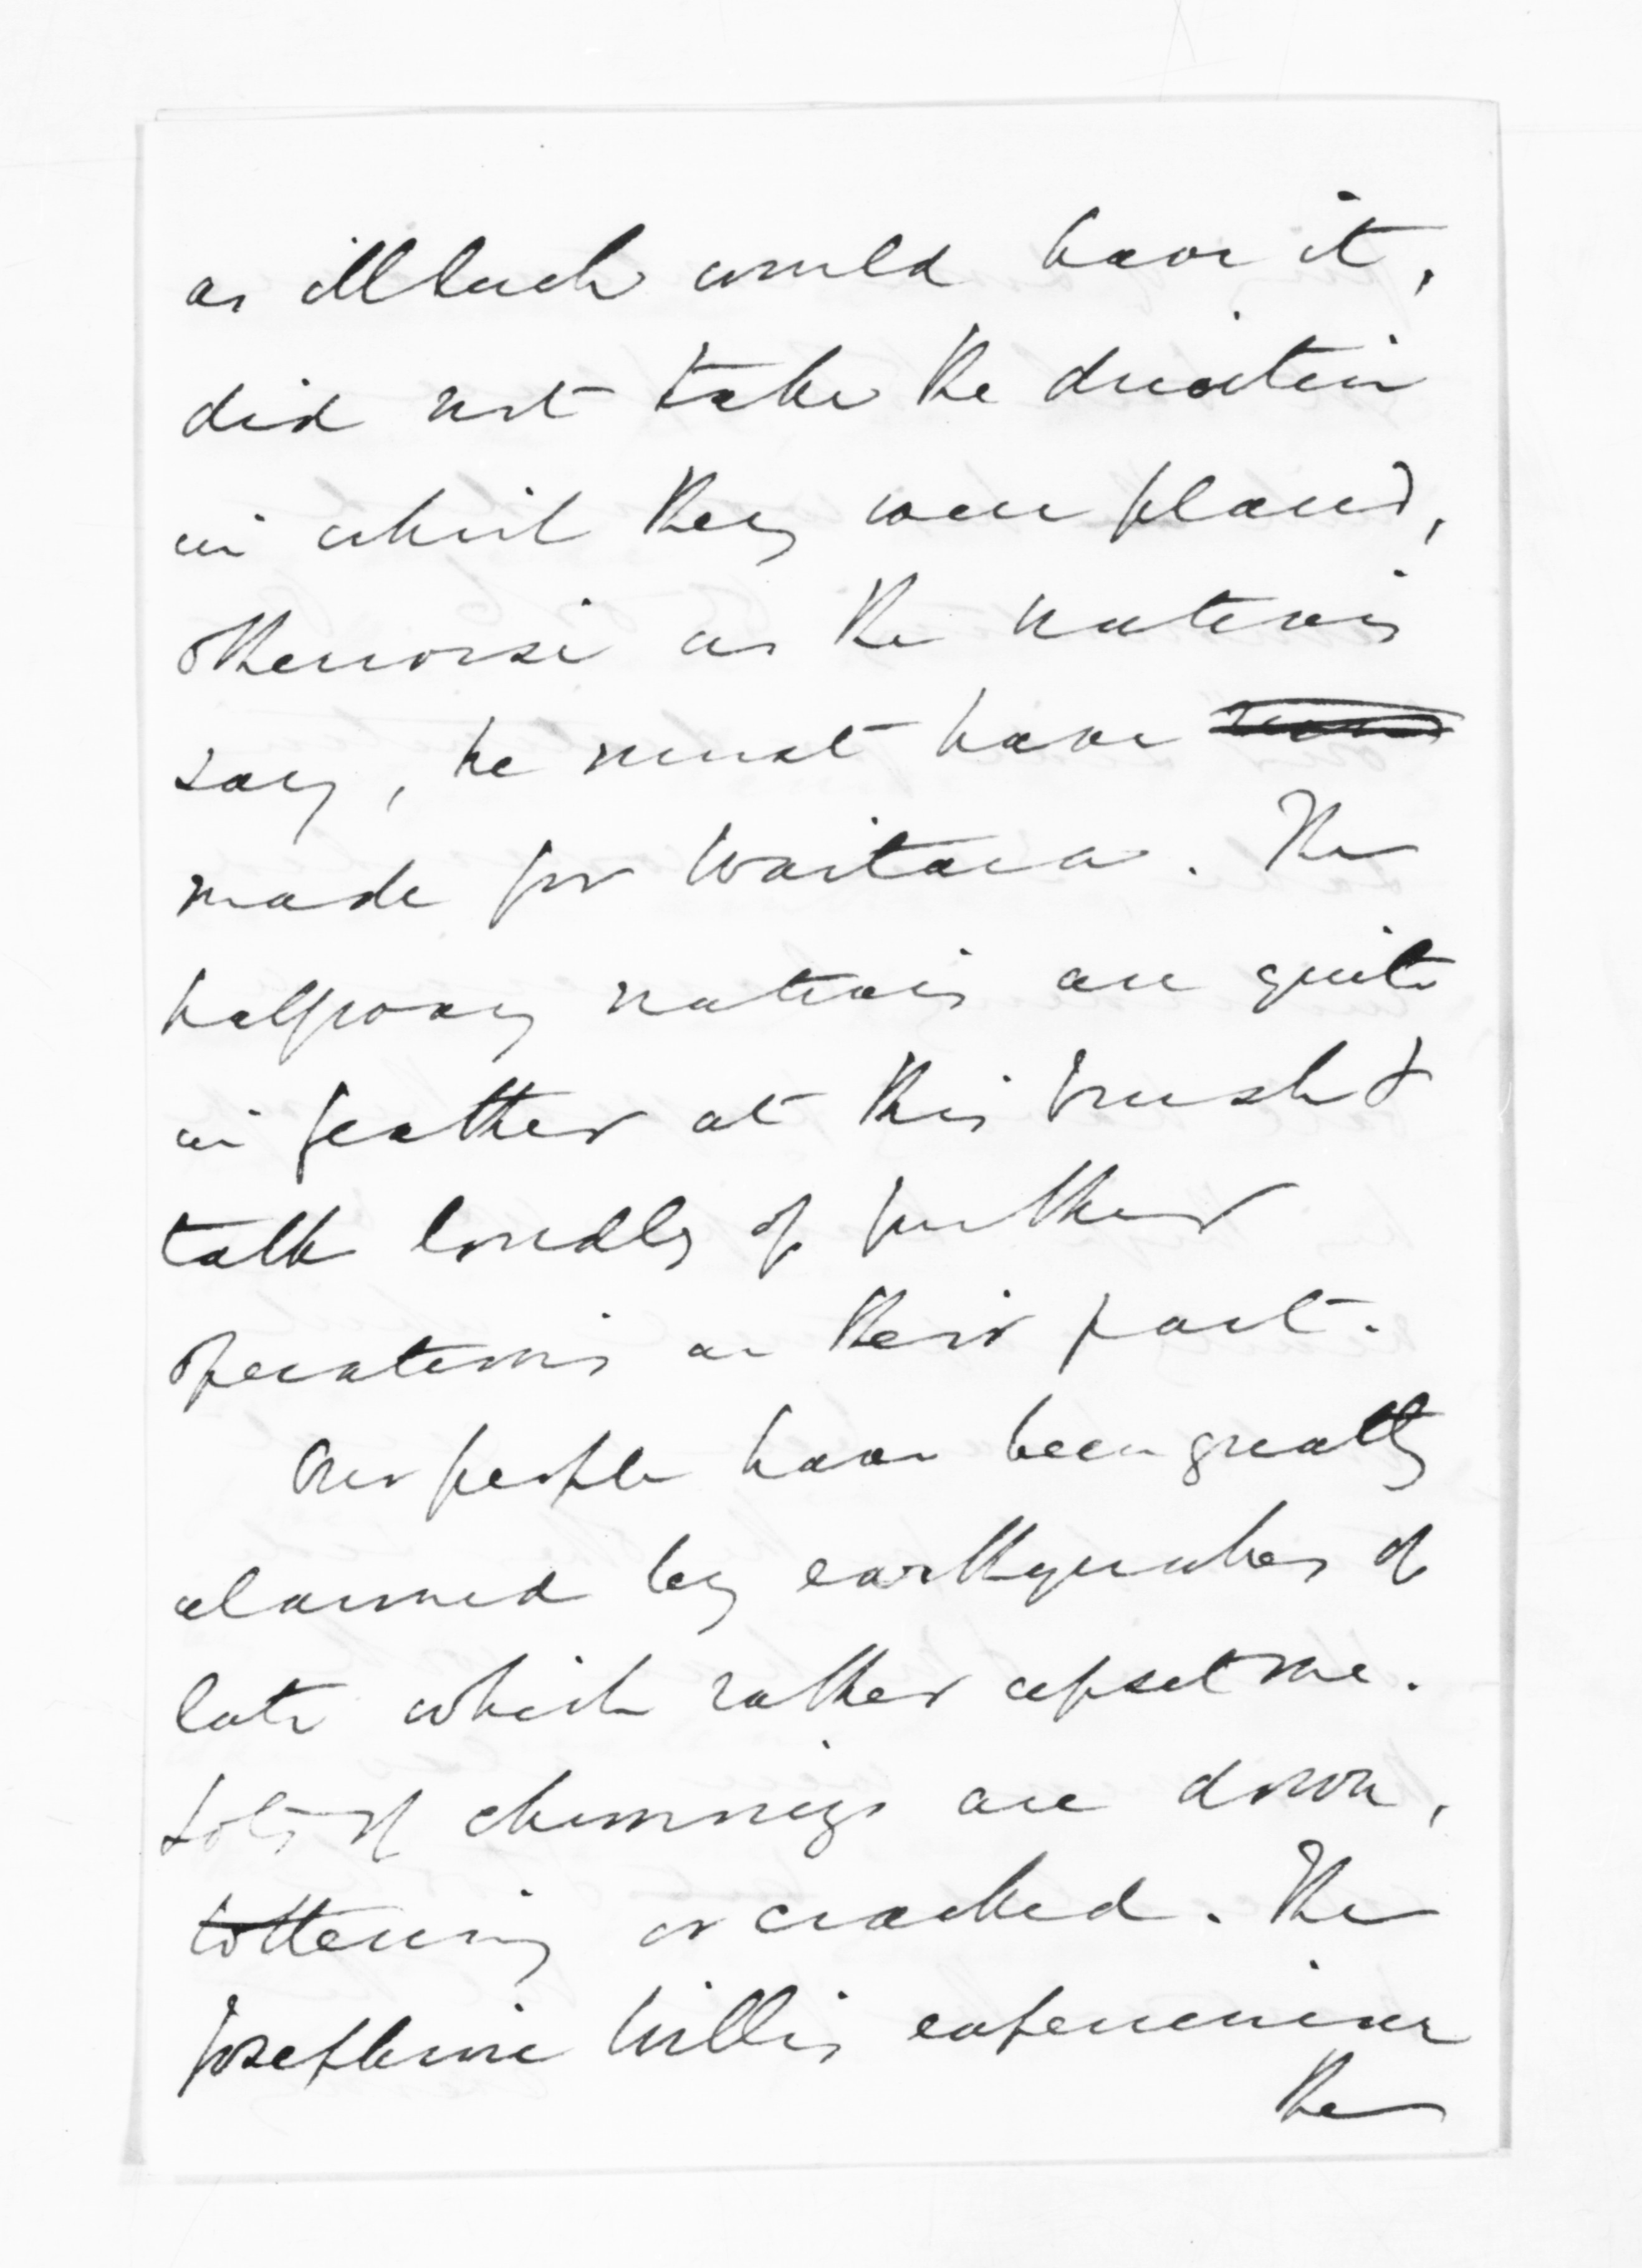 as ill luck would have it,
did not take the direction
in which they were placed,
otherwise as the natives
say, he must have
made for Waitara. The
halfway natives are quite
in feather at this brush &
talk loudly of further
operations on their part.
Our people have been greatly
alarmed by earthquakes of
late which rather upset me.
Lots of chimneys are down,
tottering or cracked. The
Josephine Willis experience
the